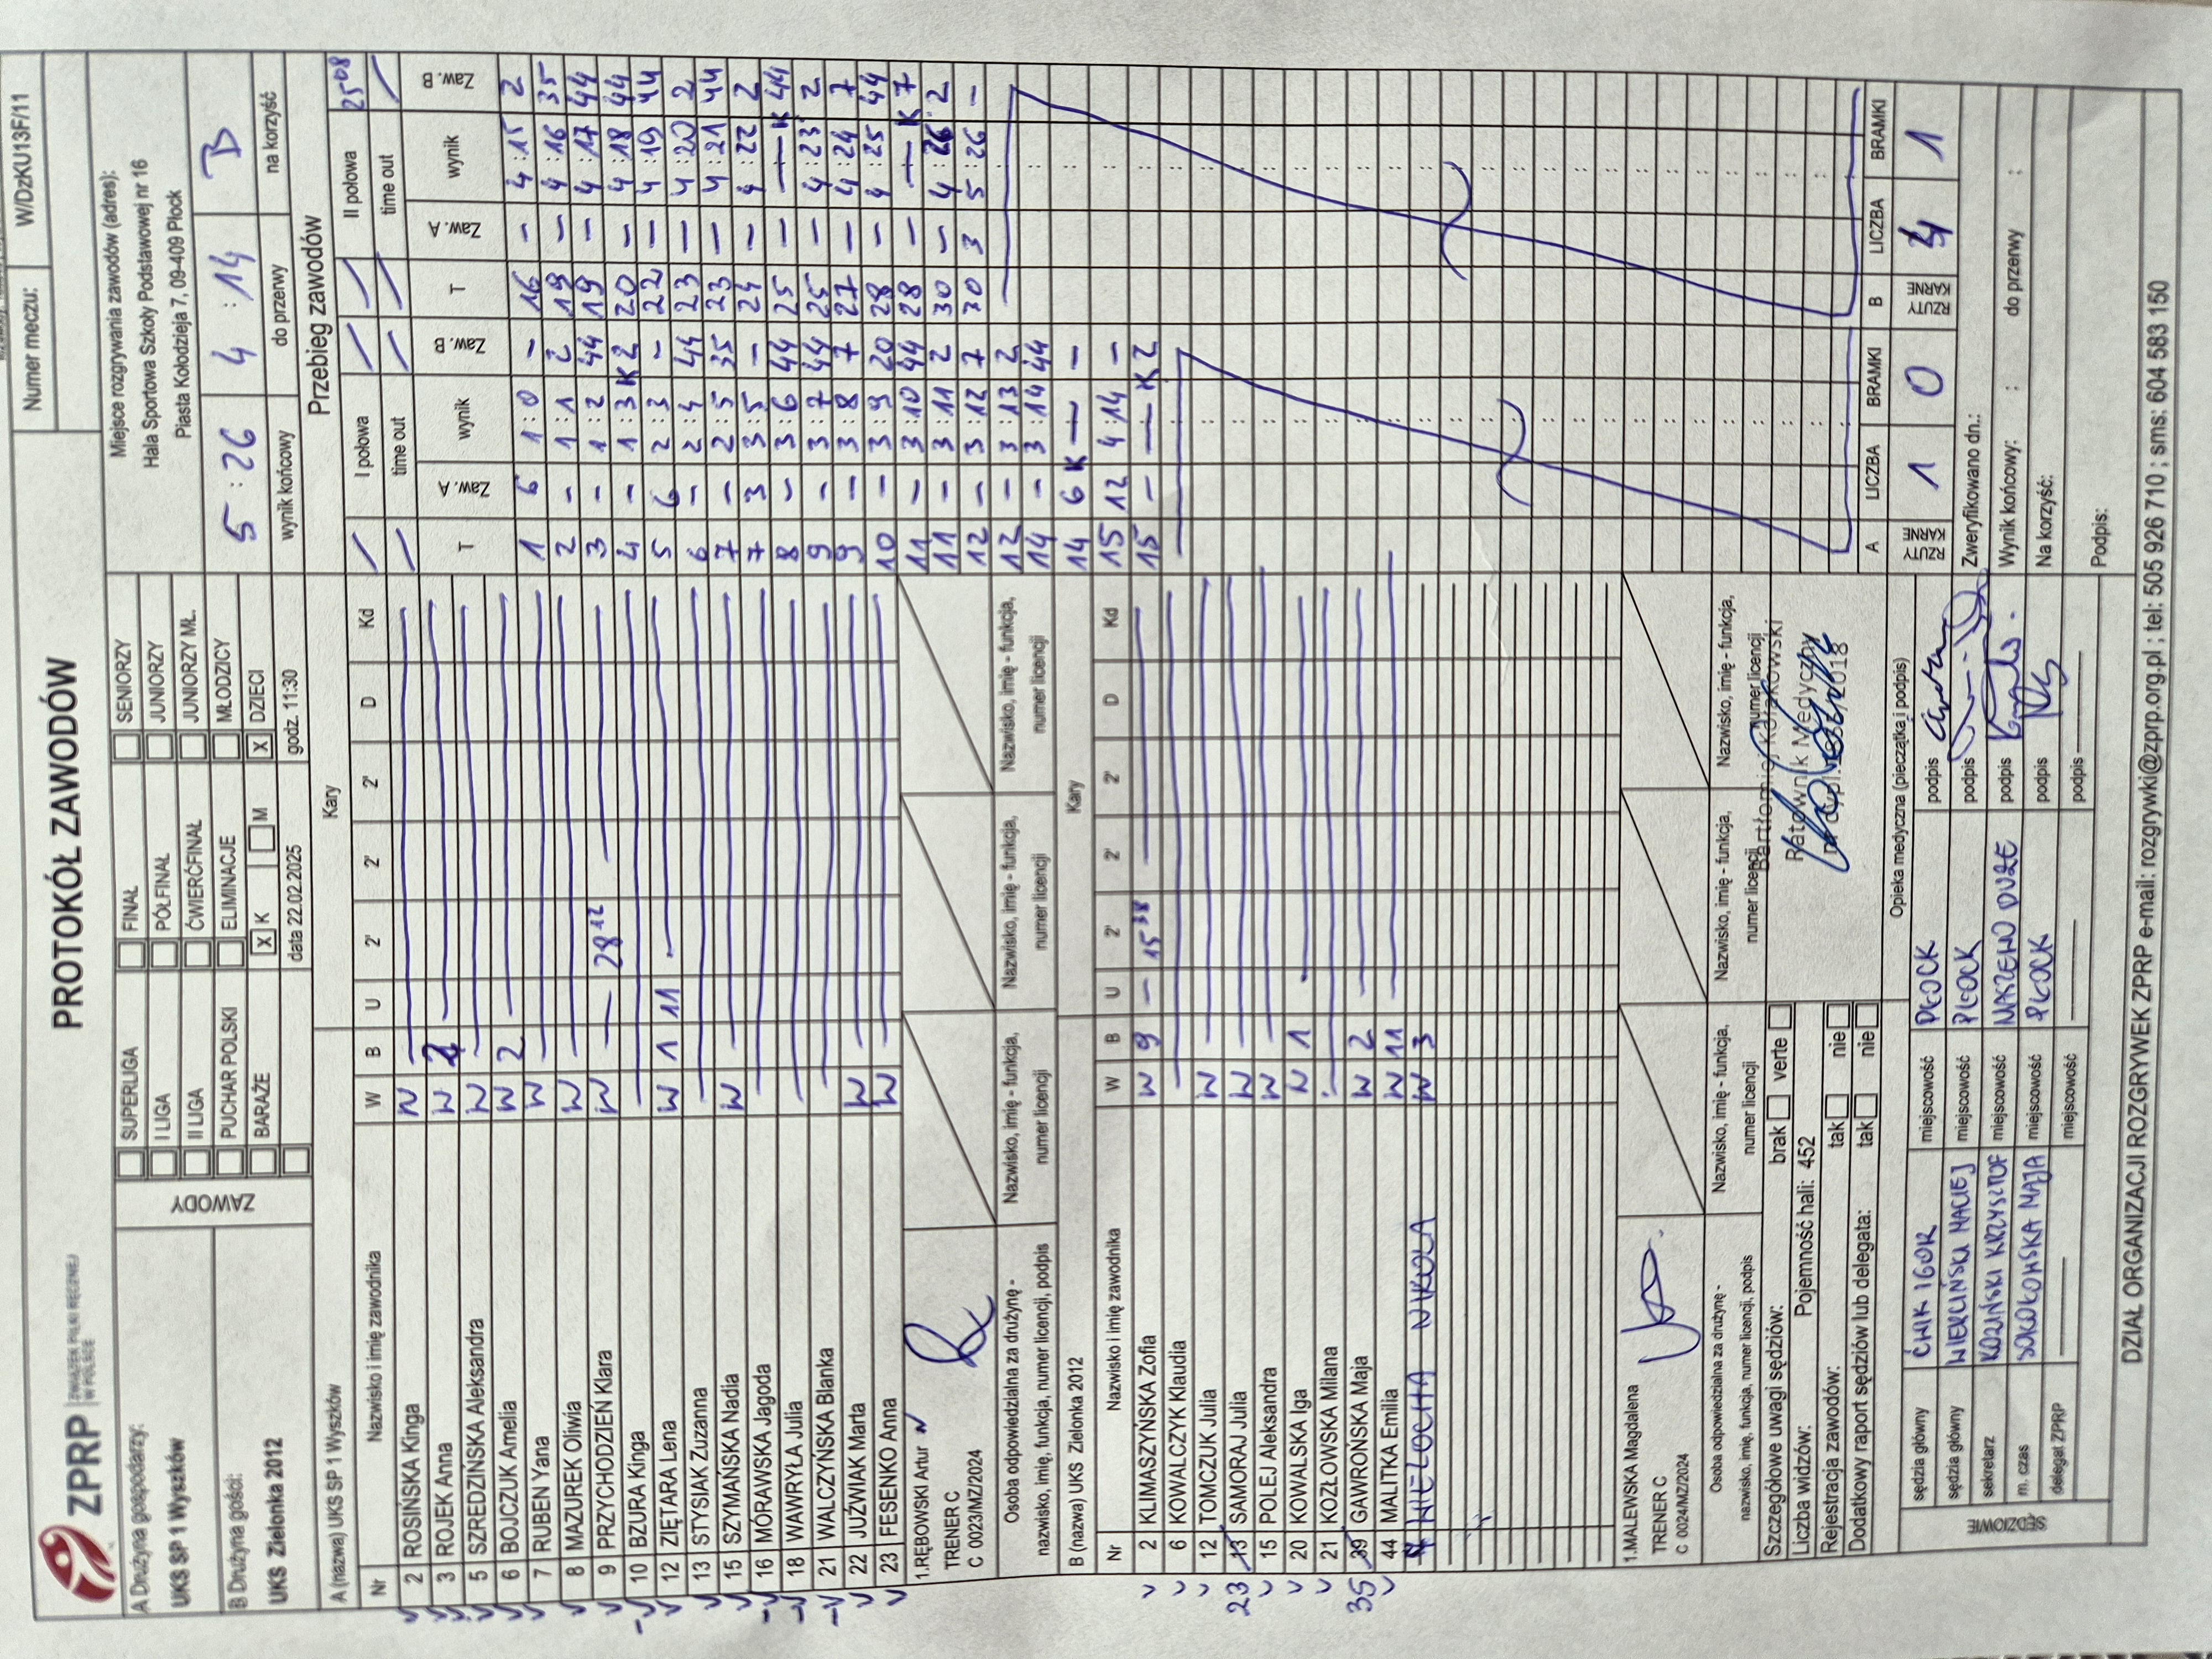 ZPRP ZWIĄZEK PIŁKI RĘCZNEJ W POLSCE
PROTOKÓŁ ZAWODÓW
Numer meczu: W/DzKU13F/11
A Drużyna gospodarzy:
UKS SP 1 Wyszków
B Drużyna gości:
UKS Zielonka 2012
ZAWODY
SUPERLIGA FINAŁ SENIORZY
I LIGA PÓŁFINAŁ JUNIORZY
II LIGA ĆWIERĆFINAŁ JUNIORZY MŁ.
PUCHAR POLSKI ELIMINACJE MŁODZICY
BARAŻE X K M X DZIECI
data 22.02.2025 godz. 11:30
Miejsce rozgrywania zawodów (adres):
Hala Sportowa Szkoły Podstawowej nr 16
Piasta Kołodzieja 7, 09-409 Płock
5 : 26 4 : 14 B
wynik końcowy do przerwy na korzyść
A (nazwa) UKS SP 1 Wyszków Kary
Nr Nazwisko i imię zawodnika W B U 2' 2' 2' D Kd
2 ROSIŃSKA Kinga W
3 ROJEK Anna W 2
5 SZREDZIŃSKA Aleksandra W
6 BOJCZUK Amelia W 2
7 RUBEN Yana W
8 MAZUREK Oliwia W
9 PRZYCHODZIEŃ Klara W 28 12
10 BZURA Kinga
12 ZIĘTARA Lena W 1 11
13 STYSIAK Zuzanna
15 SZYMAŃSKA Nadia W
16 MÓRAWSKA Jagoda
18 WAWRYŁA Julia
21 WALCZYŃSKA Blanka
22 JUŹWIAK Marta W
23 FESENKO Anna W
1.RĘBOWSKI Artur
TRENER C
C 0023/MZ/2024
Osoba odpowiedzialna za drużynę -
nazwisko, imię, funkcja, numer licencji, podpis
Nazwisko, imię - funkcja, numer licencji
Nazwisko, imię - funkcja, numer licencji
Nazwisko, imię - funkcja, numer licencji
B (nazwa) UKS Zielonka 2012 Kary
Nr Nazwisko i imię zawodnika W B U 2' 2' 2' D Kd
2 KLIMASZYŃSKA Zofia W 9 – 15 38
6 KOWALCZYK Klaudia
12 TOMCZUK Julia W
23 13 SAMORAJ Julia W
15 POLEJ Aleksandra W
20 KOWALSKA Iga W 1
21 KOZŁOWSKA Milana
35 39 GAWROŃSKA Maja W 2
44 MALITKA Emilia W 11
7 WIELOCHA NIKOLA W 3
1.MALEWSKA Magdalena
TRENER C
C 0024/MZ/2024
Osoba odpowiedzialna za drużynę -
nazwisko, imię, funkcja, numer licencji, podpis
Nazwisko, imię - funkcja, numer licencji
Nazwisko, imię - funkcja, numer licencji
Nazwisko, imię - funkcja, numer licencji
Szczegółowe uwagi sędziów: brak verte
Liczba widzów: Pojemność hali: 452
Rejestracja zawodów: tak nie
Dodatkowy raport sędziów lub delegata: tak nie
Ratownik Medyczny
Opieka medyczna (pieczątka i podpis)
SĘDZIOWIE
sędzia główny ĆWIK IGOR miejscowość PŁOCK podpis
sędzia główny WIERCIŃSKI MACIEJ miejscowość PŁOCK podpis
sekretarz KOZIŃSKI KRZYSZTOF miejscowość DUŻE podpis
m. czas SOKOŁOWSKA MAJA miejscowość PŁOCK podpis
delegat ZPRP miejscowość podpis
Przebieg zawodów
I połowa II połowa 25 08
time out time out
T Zaw. A wynik Zaw. B T Zaw. A wynik Zaw. B
1 6 1:0 – 16 – 4:15 2
2 – 1:1 2 19 – 4:16 35
3 – 1:2 44 19 – 4:17 44
4 – 1:3 K2 20 – 4:18 44
5 6 2:3 – 22 – 4:19 44
6 – 2:4 44 23 – 4:20 2
7 – 2:5 35 23 – 4:21 44
7 3 3:5 – 24 – 4:22 2
8 – 3:6 44 25 – — K 44
9 – 3:7 44 25 – 4:23 2
9 – 3:8 7 27 – 4:24 7
10 – 3:9 20 28 – 4:25 44
11 – 3:10 44 28 – — K 7
11 – 3:11 2 30 – 4:26 2
12 – 3:12 7 30 3 5:26 –
12 – 3:13 2
14 – 3:14 44
14 6 K — –
15 12 4:14 –
15 – — K2
A LICZBA BRAMKI B LICZBA BRAMKI
RZUTY KARNE 1 0 RZUTY KARNE 4 1
Zweryfikowano dn.:
Wynik końcowy: : do przerwy :
Na korzyść:
Podpis:
DZIAŁ ORGANIZACJI ROZGRYWEK ZPRP e-mail: rozgrywki@zprp.org.pl ; tel: 505 926 710 ; sms: 604 583 150